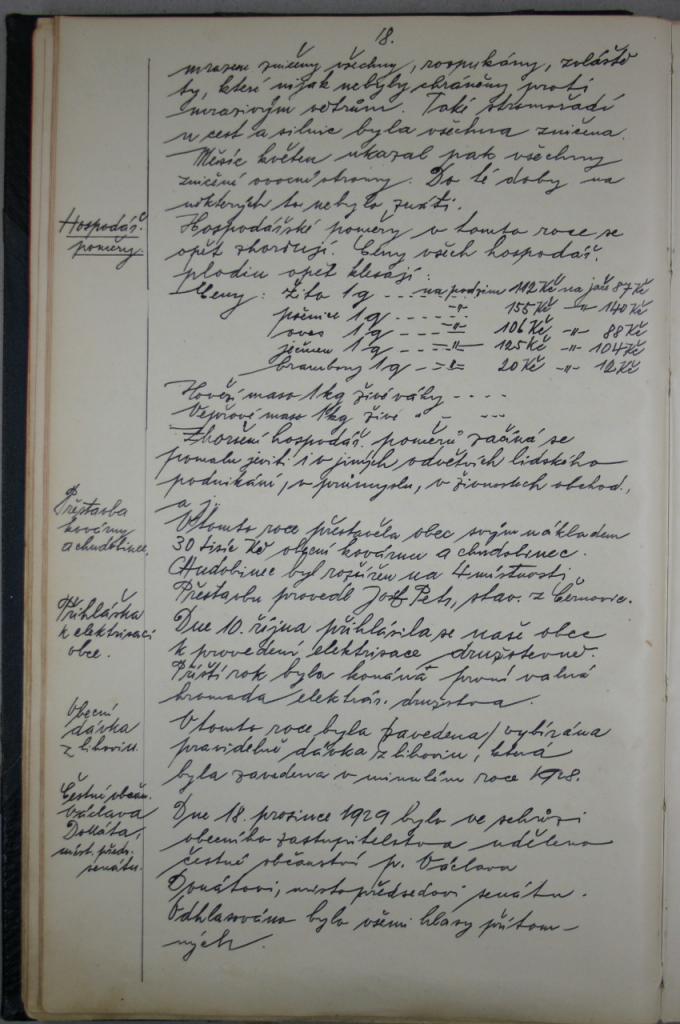 18.
mrazem zničeny všechny, rozpukány, zvláště
ty, které nijak nebyly chráněny proti
mrazivým větrům. Také stromořadí
u cest a silnic byla všechna zničena.
Měsíc květen ukázal pak všechny
zničené ovocné stromy. Do té doby na
některých to nebylo znáti.
Hospodář.
poměry.
Hospodářské poměry v tomto roce se
opět zhoršují. Ceny všech hospodář.
plodin opět klesají:
Ceny: Žito 1 q ---- na podzim 112 Kč na jaře 87 Kč
pšenice 1 q ---- -"- 155 Kč -"- 140 Kč
oves 1 q ---- -"- 106 Kč -"- 88 Kč
ječmen 1 q ---- -"- 125 Kč -"- 104 Kč
brambory 1 q -- -"- 20 Kč -"- 12 Kč
Hovězí maso 1 kg živé váhy ----
Vepřové maso 1 kg živé " - ---
Zhoršení hospodář. poměrů začíná se
pomalu jeviti i v jiných odvětvích lidského
podnikání, v průmyslu, v živnostech obchod.,
a j.
Přestavba
kovárny
a chudobince.
V tomto roce přestavěla obec svým nákladem
30 tisíc Kč obecní kovárnu a chudobinec.
Chudobinec byl rozšířen na 4 místnosti.
Přestavbu provedl Josef Petr, stav. z Černovic.
Přihláška
k elektrisaci
obce.
Dne 10. října přihlásila se naše obec
k provedení elektrisace družstevně.
Příští rok byla konána první valná
hromada elektrás. družstva.
Obecní
dávka
z lihovin.
V tomto roce byla zavedena / vybírána
pravidelně dávka z lihovin, která
byla zavedena v minulém roce 1928.
Čestné občan.
Václava
Donáta,
míst. předs.
senátu.
Dne 18. prosince 1929 bylo ve schůzi
obecního zastupitelstva uděleno
čestné občanství p. Václavu
Donátovi, místopředsedovi senátu.
Odhlasováno bylo všemi hlasy přítom-
ných.